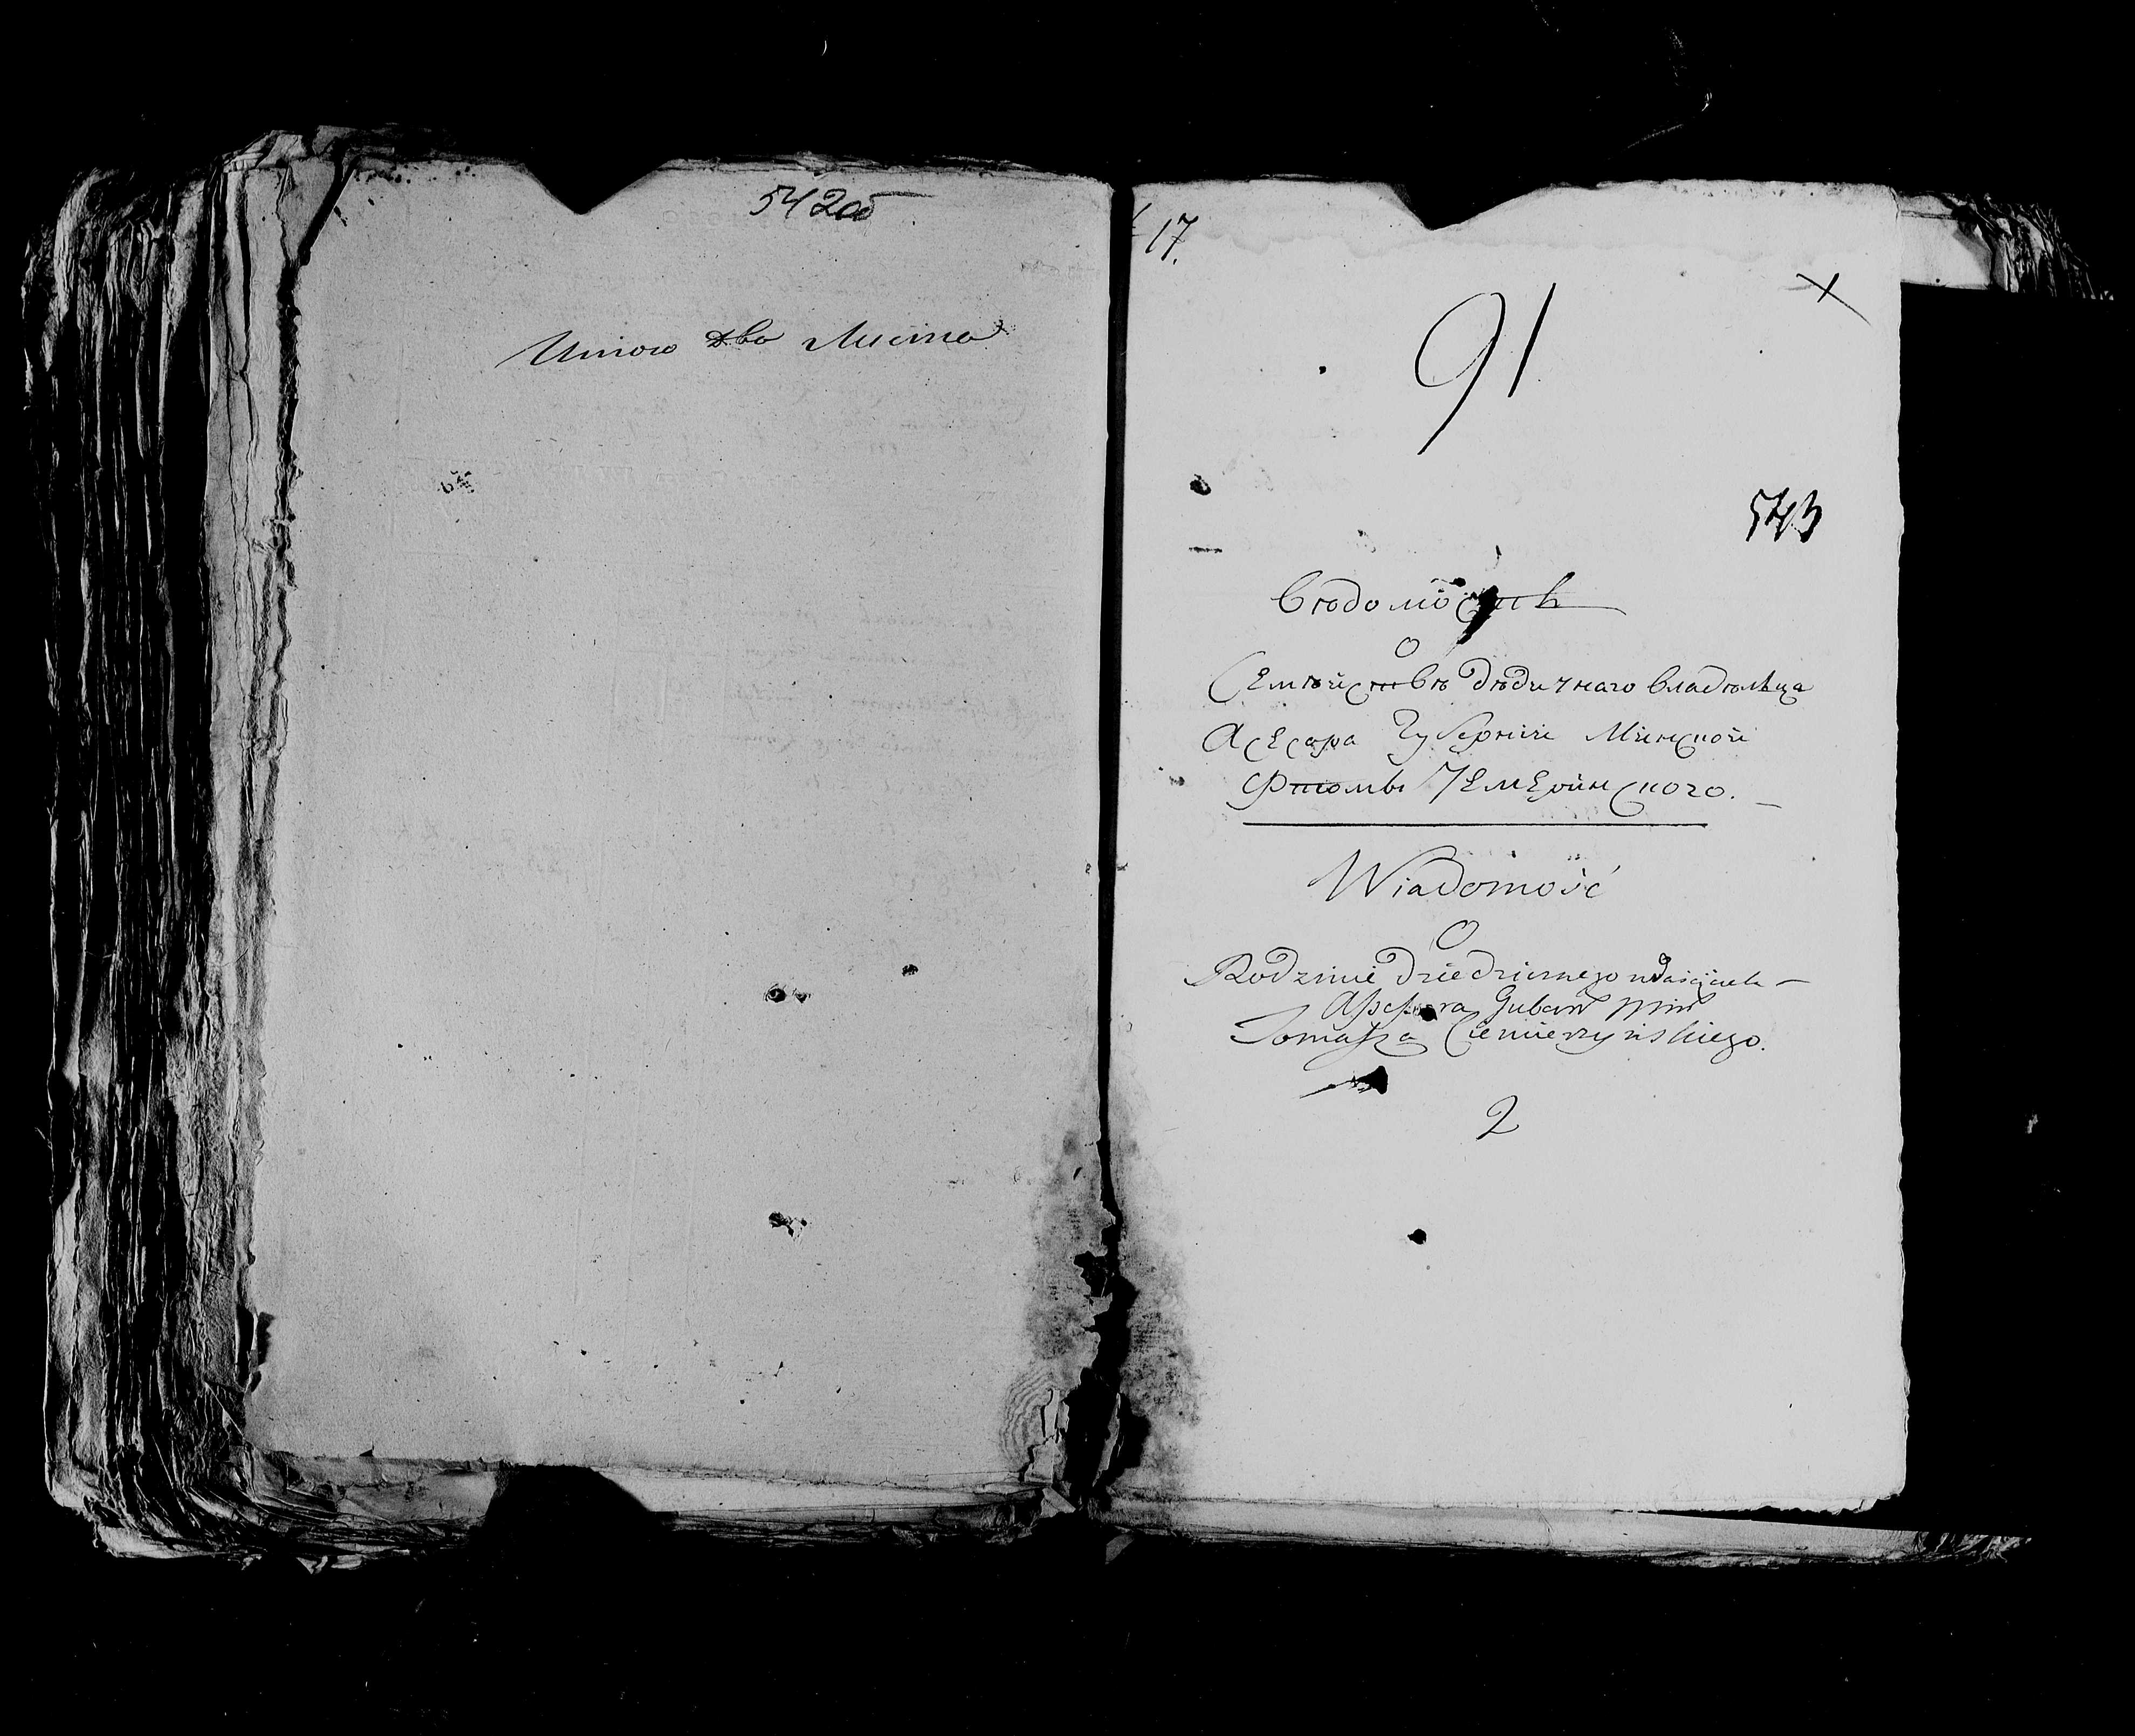 542об
Итого два листа
17.
91
543
Вѣдомость
О
Семѣйствѣ дѣдичнаго владѣльца
Асесара Губернии Минской
Фтомы Чемеринского.
Wiadomość
O
Rodzinie Dziedzicznego właściciela
Assessora Gubern Miń
Tomasza Ciemierzyńskiego.
2